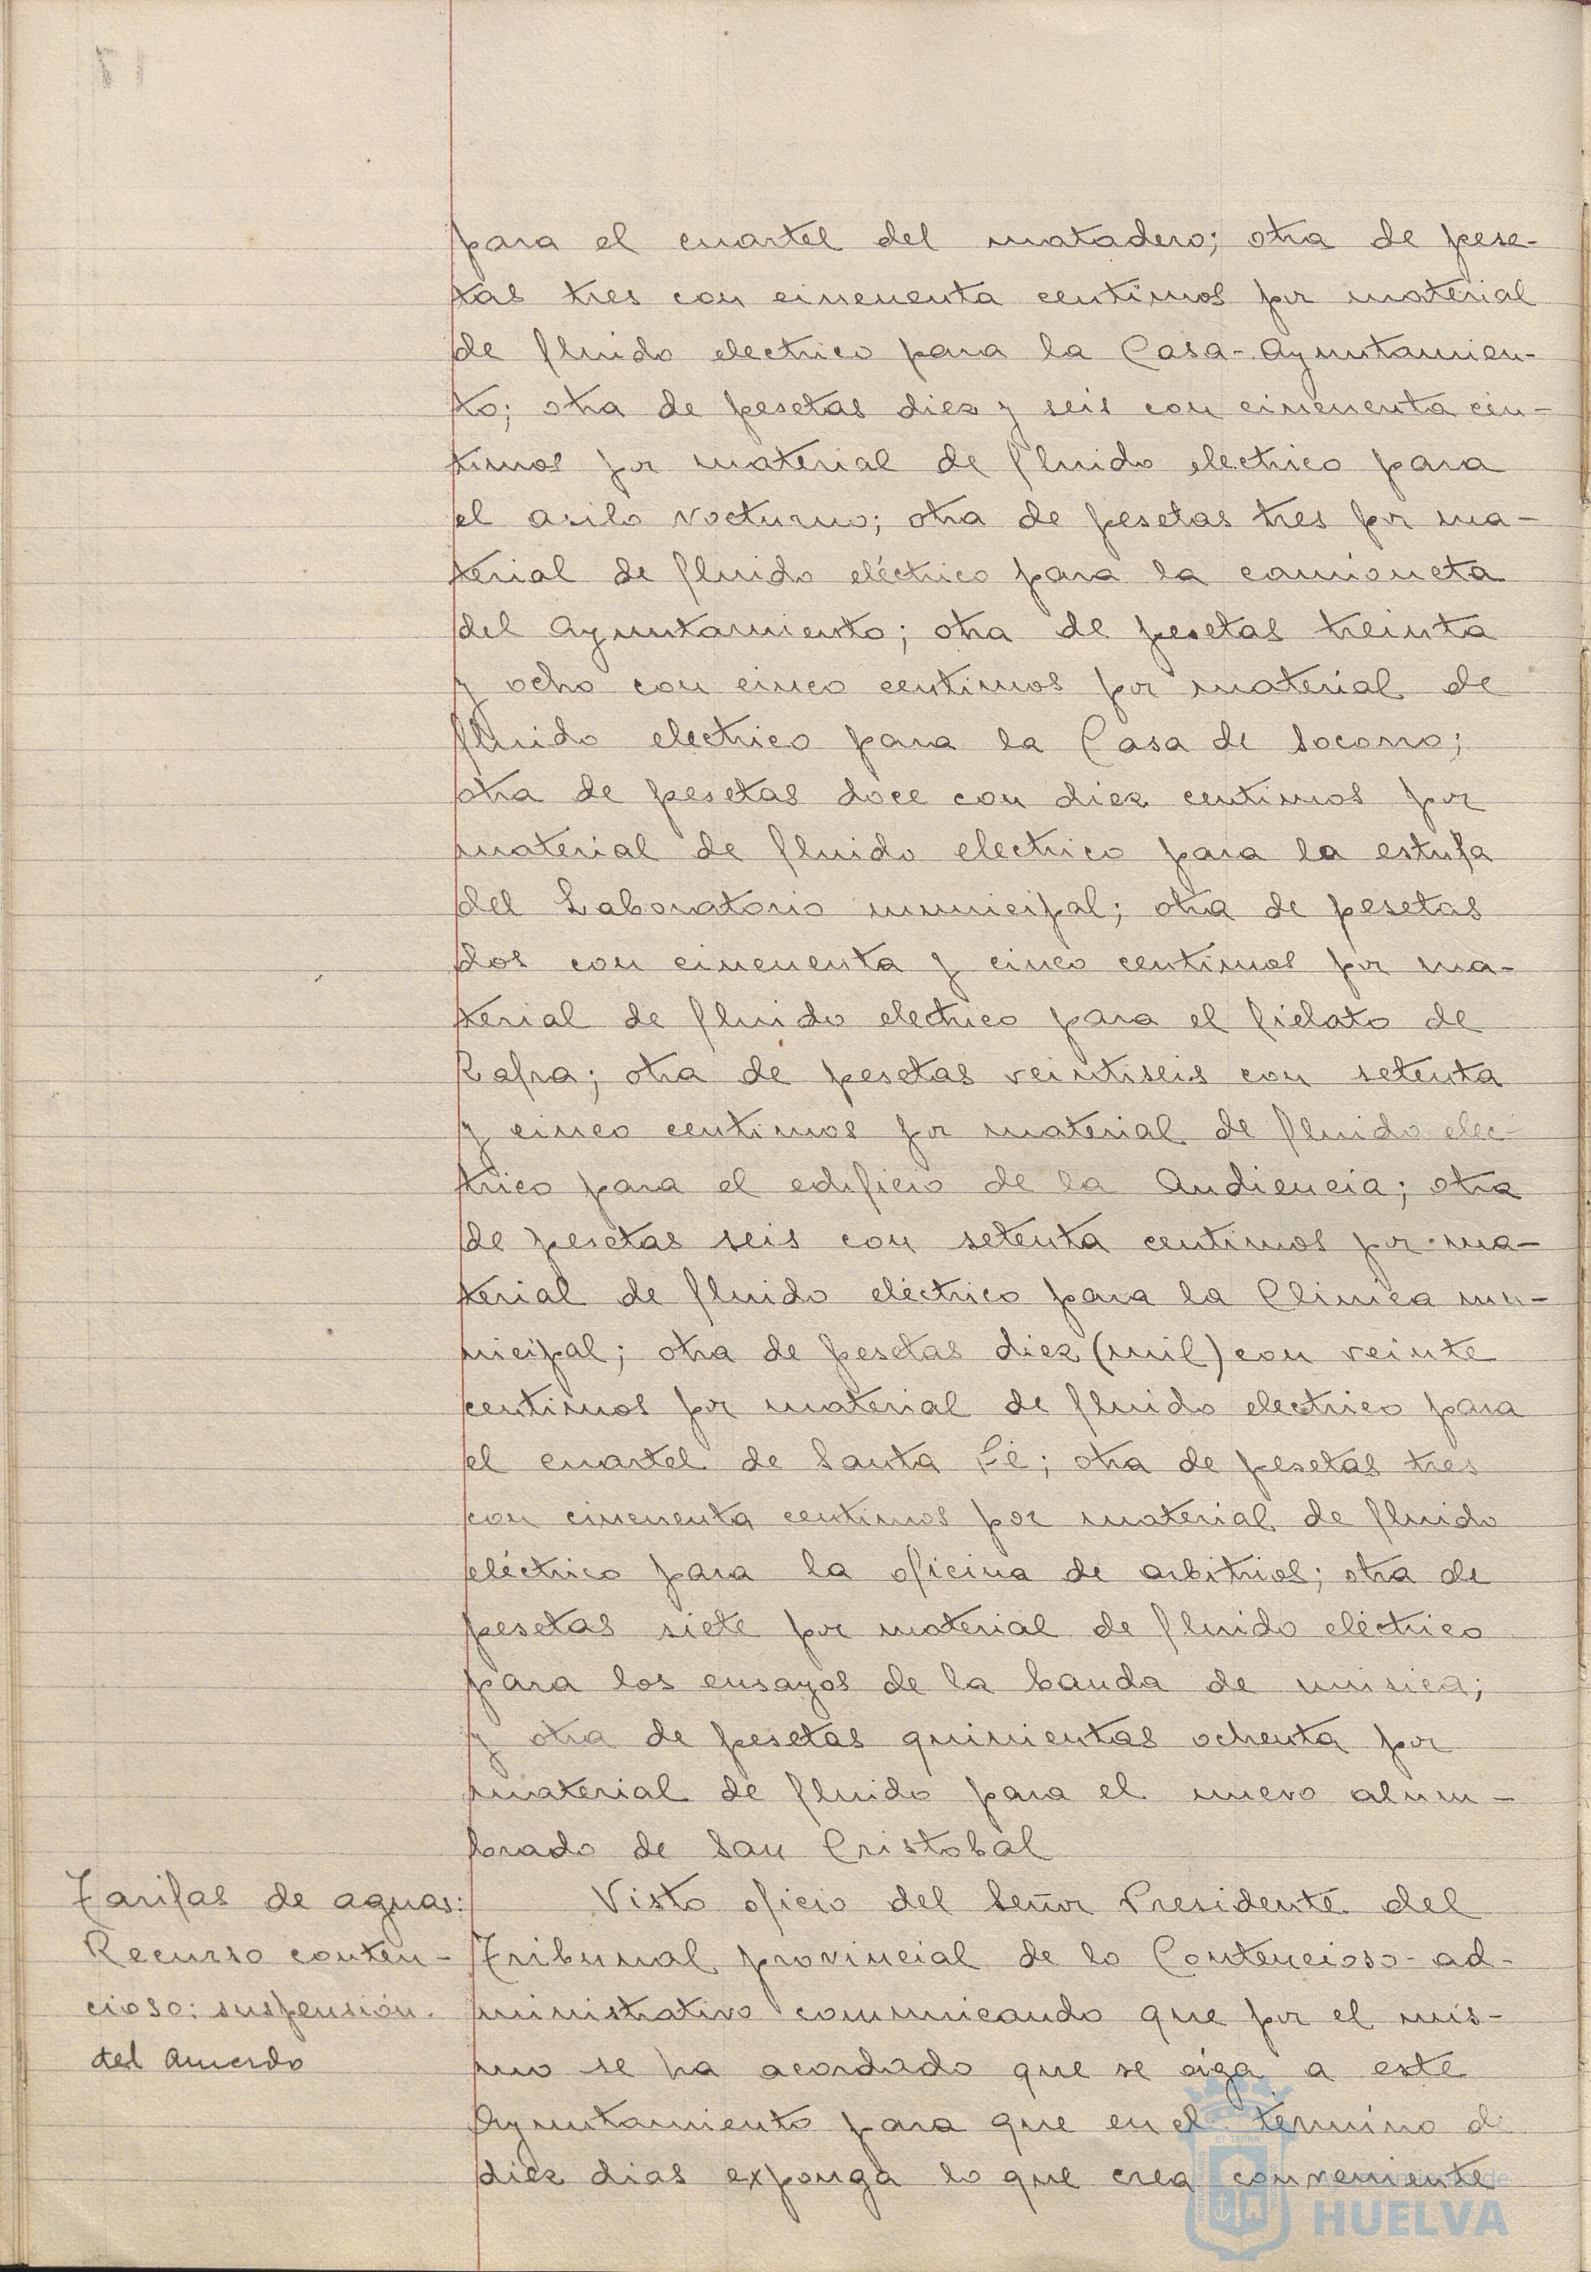 para el cuartel del matadero; otra de pese-
tas tres con cincuenta centimos por material
de fluido electrico para la Casa-Ayuntamien-
to; otra de pesetas diez y seis con cincuenta cén-
timos por material de fluido electrico para
el asilo nocturno; otra de pesetas tres por ma-
terial de fluido eléctrico para la camioneta
del Ayuntamiento; otra de pesetas treinta
y ocho con cinco centimos por material de
fluido electrico para la Casa de Socorro;
otra de pesetas doce con diez centimos por
material de fluido electrico para la estufa
del Laboratorio municipal; otra de pesetas
dos con cincuenta y cinco centimos por ma-
terial de fluido electrico para el fielato de
Zafra; otra de pesetas veintiseis con setenta
y cinco centimos por material de fluido elec-
trico para el edificio de la Audiencia; otra
de pesetas seis con setenta centimos por ma-
terial de fluido eléctrico para la Clinica mu-
nicipal; otra de pesetas diez (mil) con veinte
centimos por material de fluido electrico para
el cuartel de Santa Fé; otra de pesetas tres
con cincuenta centimos por material de fluido
eléctrico para la oficina de arbitrios; otra de
pesetas siete por material de fluido eléctrico
para los ensayos de la banda de musica;
y otra de pesetas quinientas ochenta por
material de fluido para el nuevo alum-
brado de San Cristobal
Tarifas de aguas:
Recurso conten-
cioso: suspensión
del Acuerdo
Visto oficio del Señor Presidente del
Tribunal provincial de lo Contencioso-ad-
ministrativo comunicando que por el mis-
mo se ha acordado que se oiga a este
Ayuntamiento para que en el término de
diez dias exponga lo que crea conveniente
HUELVA